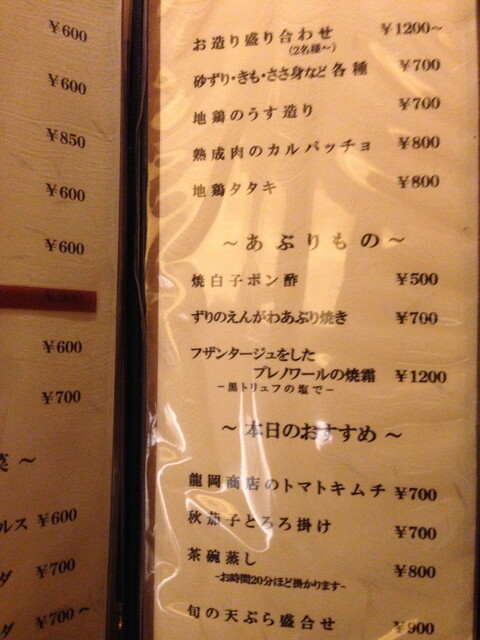 ¥600
¥600
¥850
¥600
¥600
¥600
¥700
～
ルス ¥600
ダ ¥700
ダ ¥700～
お造り盛り合わせ ¥1200～
(2名様～)
砂ずり・きも・ささ身など各種 ¥700
地鶏のうす造り ¥700
熟成肉のカルパッチョ ¥800
地鶏タタキ ¥800
～あぶりもの～
焼白子ポン酢 ¥500
ずりのえんがわあぶり焼き ¥700
フザンタージュをした
プレノワールの焼霜 ¥1200
－黒トリュフの塩で－
～本日のおすすめ～
龍岡商店のトマトキムチ ¥700
秋茄子とろろ掛け ¥700
茶碗蒸し ¥800
-お時間20分ほど掛かります-
旬の天ぷら盛合せ ¥900